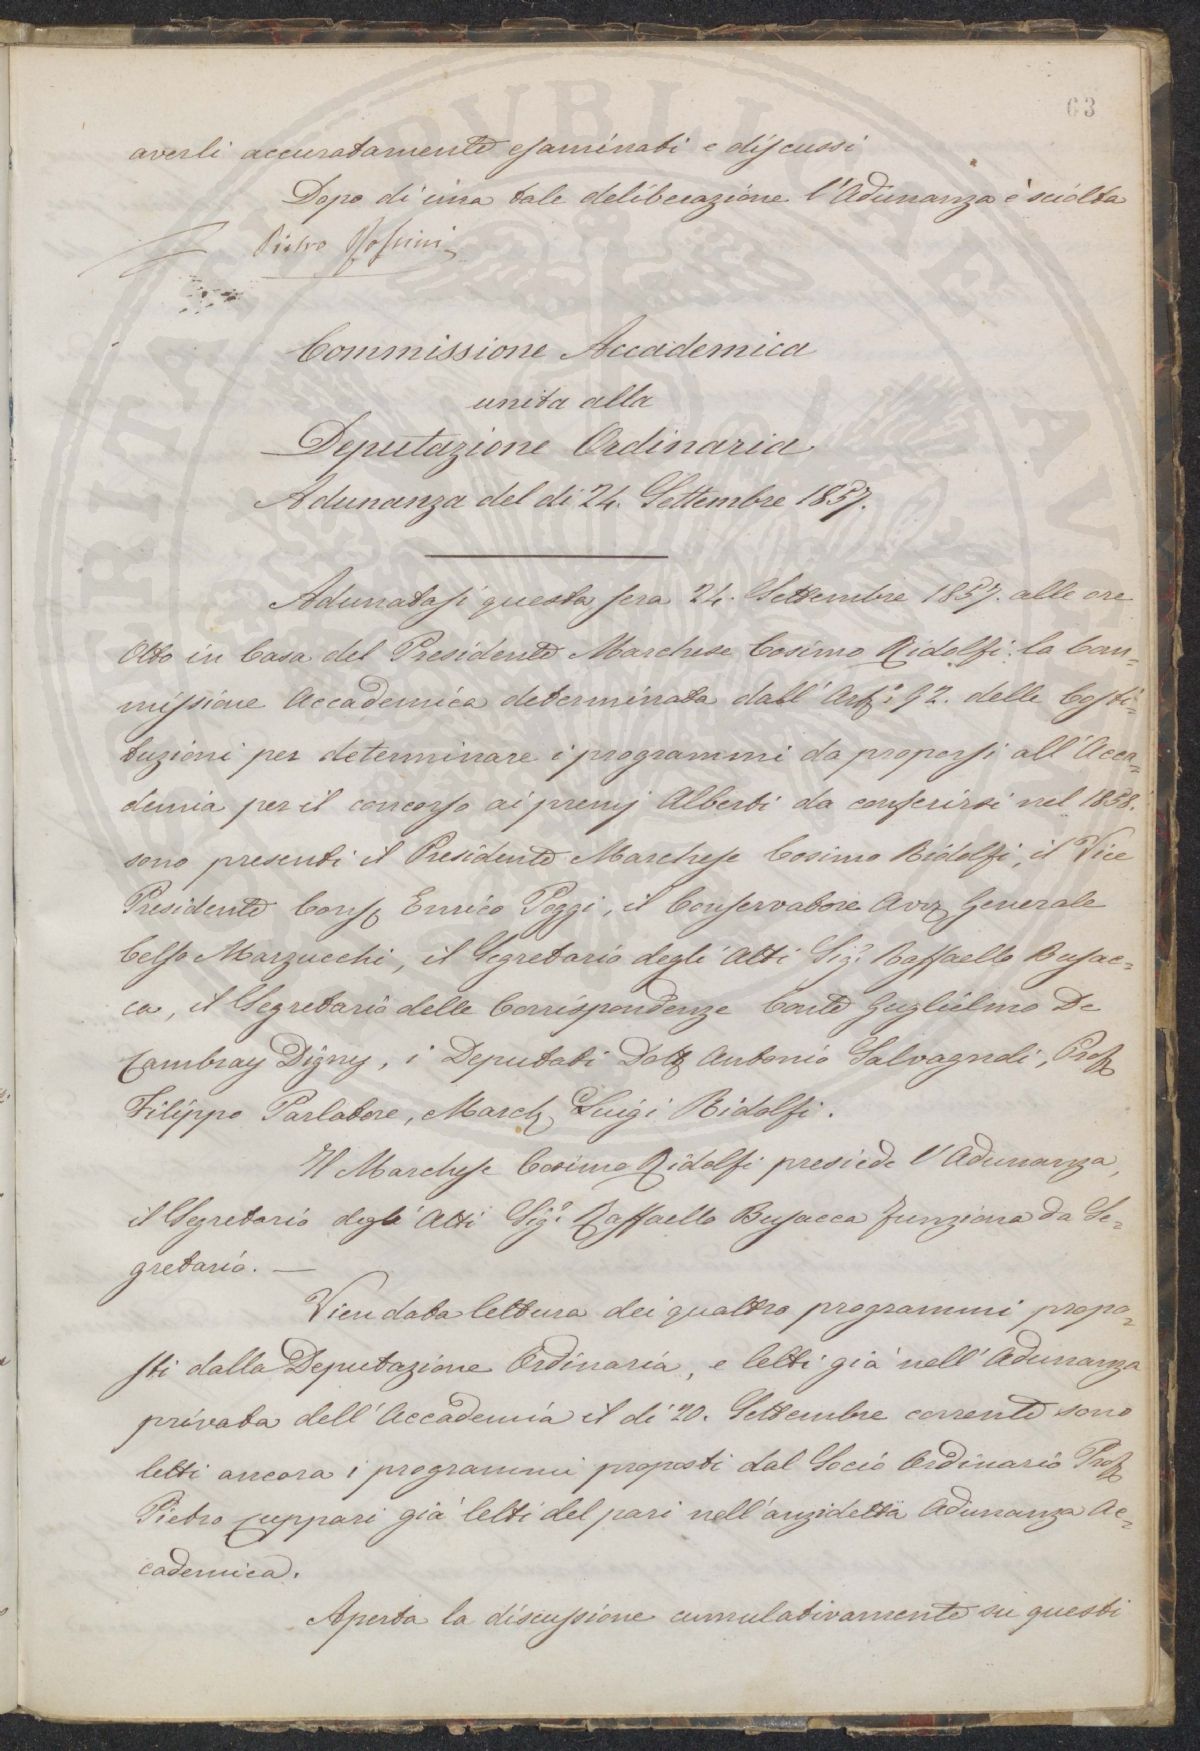 63
averli accuratamente esaminati e discussi
Dopo di una tale deliberazione l'Adunanza è sciolta
Pietro
Commissione Accademica
unita alla
Deputazione Ordinaria
Adunanza del di 24. Settembre 1857.
Adunatasi questa sera 24. Settembre 1857. alle ore
Otto in Casa del Presidente Marchese Cosimo Ridolfi la Com=
missione Accademica determinata dall'Art.° 92. delle Costi=
tuzioni per determinare i programmi da proporsi all'Acca=
demia per il concorso ai premj Alberti da conferirsi nel 1858.
sono presenti il Presidente Marchese Cosimo Ridolfi, il Vice
Presidente Cons. Enrico Poggi, il Conservatore Avv. Generale
Celso Marzucchi, il Segretario degli Atti Sig.r Raffaello Busac=
ca, il Segretario delle Corrispondenze Conte Guglielmo De
Cambray Digny, i Deputati Dott. Antonio Salvagnoli, Prof.
Filippo Parlatore, March. Luigi Ridolfi.
Il Marchese Cosimo Ridolfi presiede l'Adunanza,
il Segretario degli Atti Sig.r Raffaello Busacca funziona da Se=
gretario. —
Vien data lettura dei quattro programmi propo=
sti dalla Deputazione Ordinaria, e letti già nell'Adunanza
privata dell'Accademia il dì 20. Settembre corrente sono
letti ancora i programmi proposti dal Socio Ordinario Prof.
Pietro Cuppari già letti del pari nell'anzidetta Adunanza Ac=
cademica.
Aperta la discussione cumulativamente su questi